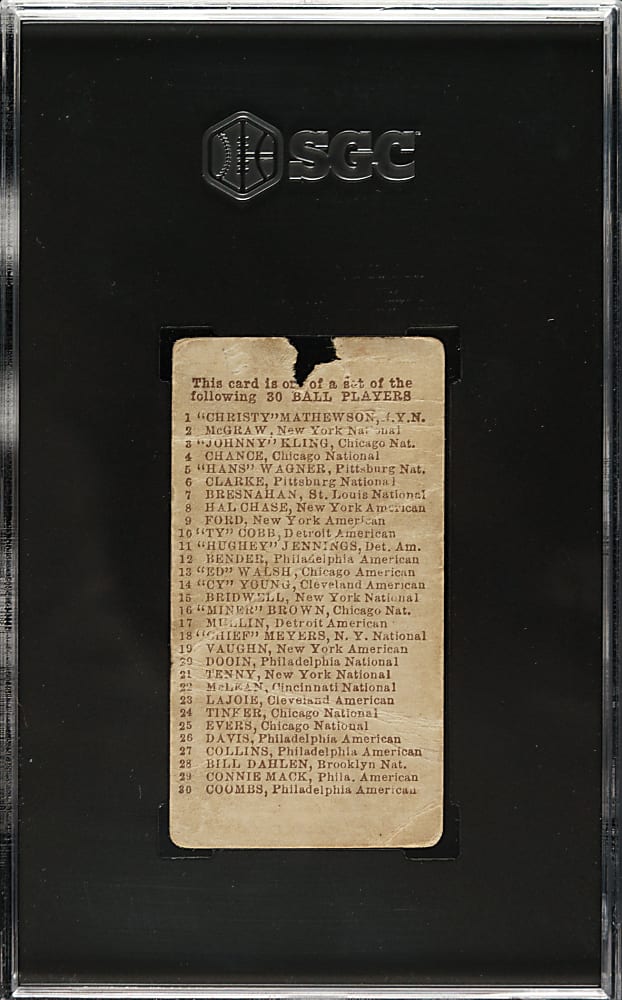 SGC
This card is one of a set of the
following 30 BALL PLAYERS
1 "CHRISTY" MATHEWSON, N.Y.N.
2 McGRAW, New York National
3 "JOHNNY" KLING, Chicago Nat.
4 CHANCE, Chicago National
5 "HANS" WAGNER, Pittsburg Nat.
6 CLARKE, Pittsburg National
7 BRESNAHAN, St. Louis National
8 HAL CHASE, New York American
9 FORD, New York American
10 "TY" COBB, Detroit American
11 "HUGHEY" JENNINGS, Det. Am.
12 BENDER, Philadelphia American
13 "ED" WALSH, Chicago American
14 "CY" YOUNG, Cleveland American
15 BRIDWELL, New York National
16 "MINER" BROWN, Chicago Nat.
17 MULLIN, Detroit American
18 "CHIEF" MEYERS, N. Y. National
19 VAUGHN, New York American
20 DOOIN, Philadelphia National
21 TENNY, New York National
22 McLEAN, Cincinnati National
23 LAJOIE, Cleveland American
24 TINKER, Chicago National
25 EVERS, Chicago National
26 DAVIS, Philadelphia American
27 COLLINS, Philadelphia American
28 BILL DAHLEN, Brooklyn Nat.
29 CONNIE MACK, Phila. American
30 COOMBS, Philadelphia American